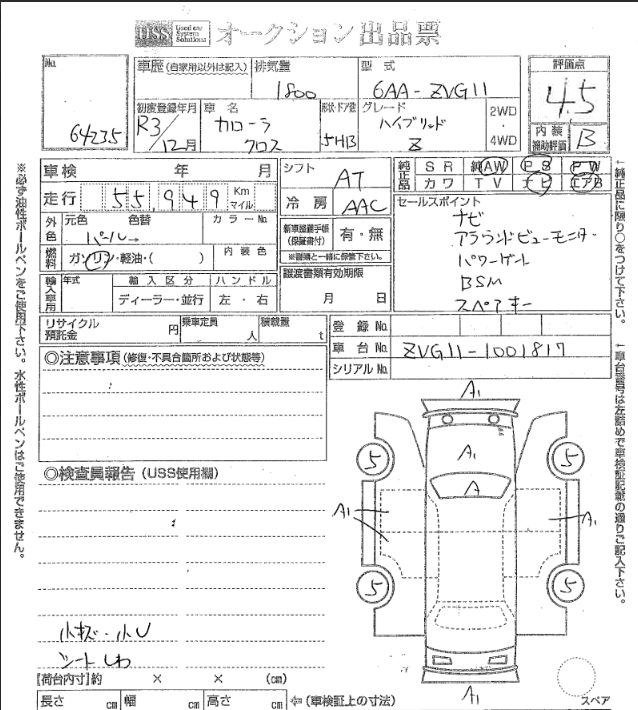 USS Used car System Solutions オークション出品票
No. 64235
車歴 (自家用以外は記入) 排気量 1800 型式 6AA-ZVG11
評価点 4.5
初度登録年月 R3/12月 車名 カローラ クロス 形状・ドア数 5HB グレード ハイブリッド Z 2WD 4WD
内装補助評価 B
車検 年 月
走行 55,949 Km マイル
外色 元色 色替 カラーNo. パール
燃料 ガソリン・軽油・( ) 内装色
輸入車用 年式 輸入区分 ディーラー・並行 ハンドル 左・右
シフト AT
冷房 AAC
新車登録手帳 (保証書付) 有・無
※書類と一緒に保管下さい。
譲渡書類有効期限
月 日
純正品 SR 純AW PS PW
カワ TV ナビ エアB
セールスポイント
ナビ
アラウンドビューモニター
パワーゲート
BSM
スペアキー
リサイクル預託金 円 乗車定員 人 積載量 t
登録No.
車台No. ZVG11-1001817
シリアルNo.
◎注意事項 (修復・不具合箇所および状態等)
◎検査員報告 (USS使用欄)
小キズ・小U
シートしわ
A1
A1
A
5 5
A1 A1
5 5
A1
スペア
【荷台内寸】約 × × (cm)
長さ cm 幅 cm 高さ cm ⇦ (車検証上の寸法)
※必ず油性ボールペンをご使用下さい。水性ボールペンはご使用できません。
←純正品に限り○をつけて下さい。
←車台番号は左詰めで車検証記載の通りご記入下さい。